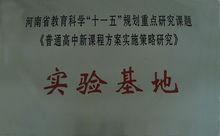 河南省教育科学“十一五”规划重点研究课题
《普通高中新课程方案实施策略研究》
实验基地